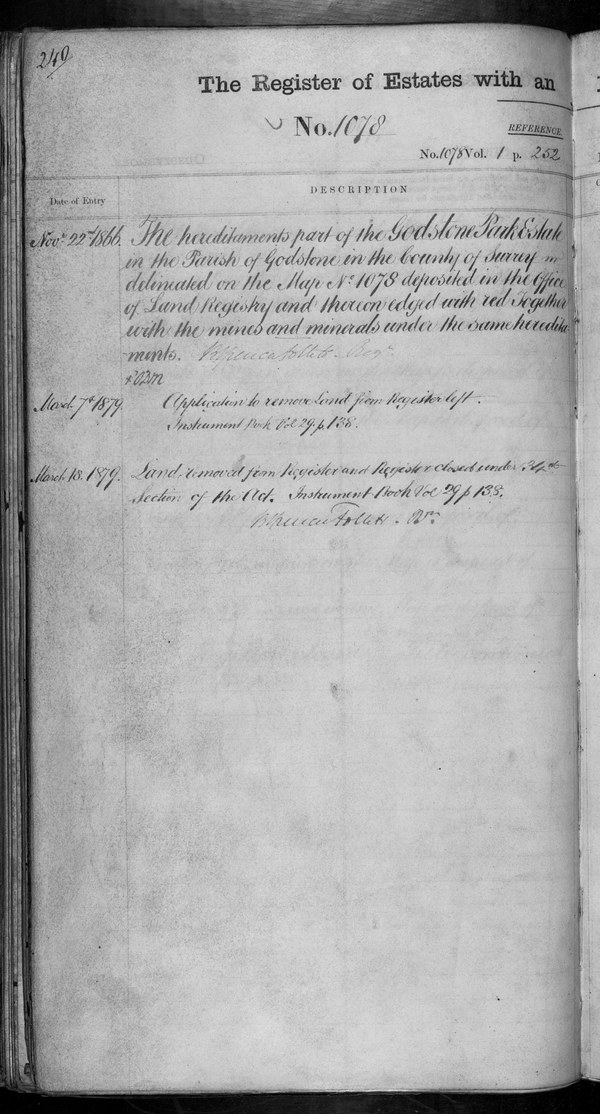 249
The Register of Estates with an
No. 1078
REFERENCE
No. 1078 Vol. 1 p. 252
Date of Entry
DESCRIPTION
Novr. 22nd 1866. The hereditaments part of the Godstone Park Estate
in the Parish of Godstone in the County of Surrey
delineated on the Map No. 1078 deposited in the Office
of Land Registry and thereon edged with red Together
with the mines and minerals under the same heredita
ments. Follett
March 7th 1879. Application to remove Land from Register left.
Instrument Book Vol 29. p. 138.
March 18. 1879. Land removed from Register and Register closed under 34th
Section of the Act. Instrument Book Vol 29 p 138.
Follett